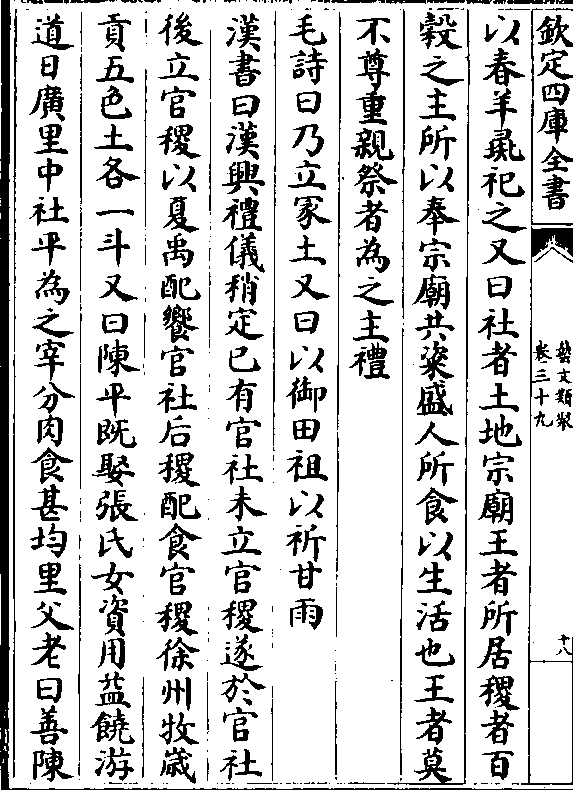 欽定四庫全書
藝文類聚
卷三十九
十八
以春羊彘祀之又曰社者土地宗廟王者所居稷者百
穀之主所以奉宗廟共粢盛人所食以生活也王者莫
不尊重親祭者為之主禮
毛詩曰乃立冢土又曰以御田祖以祈甘雨
漢書曰漢興禮儀稍定已有官社未立官稷遂於官社
後立官稷以夏禹配饗官社后稷配食官稷徐州牧歳
貢五色土各一斗又曰陳平既娶張氏女資用益饒游
道日廣里中社平為之宰分肉食甚均里父老曰善陳